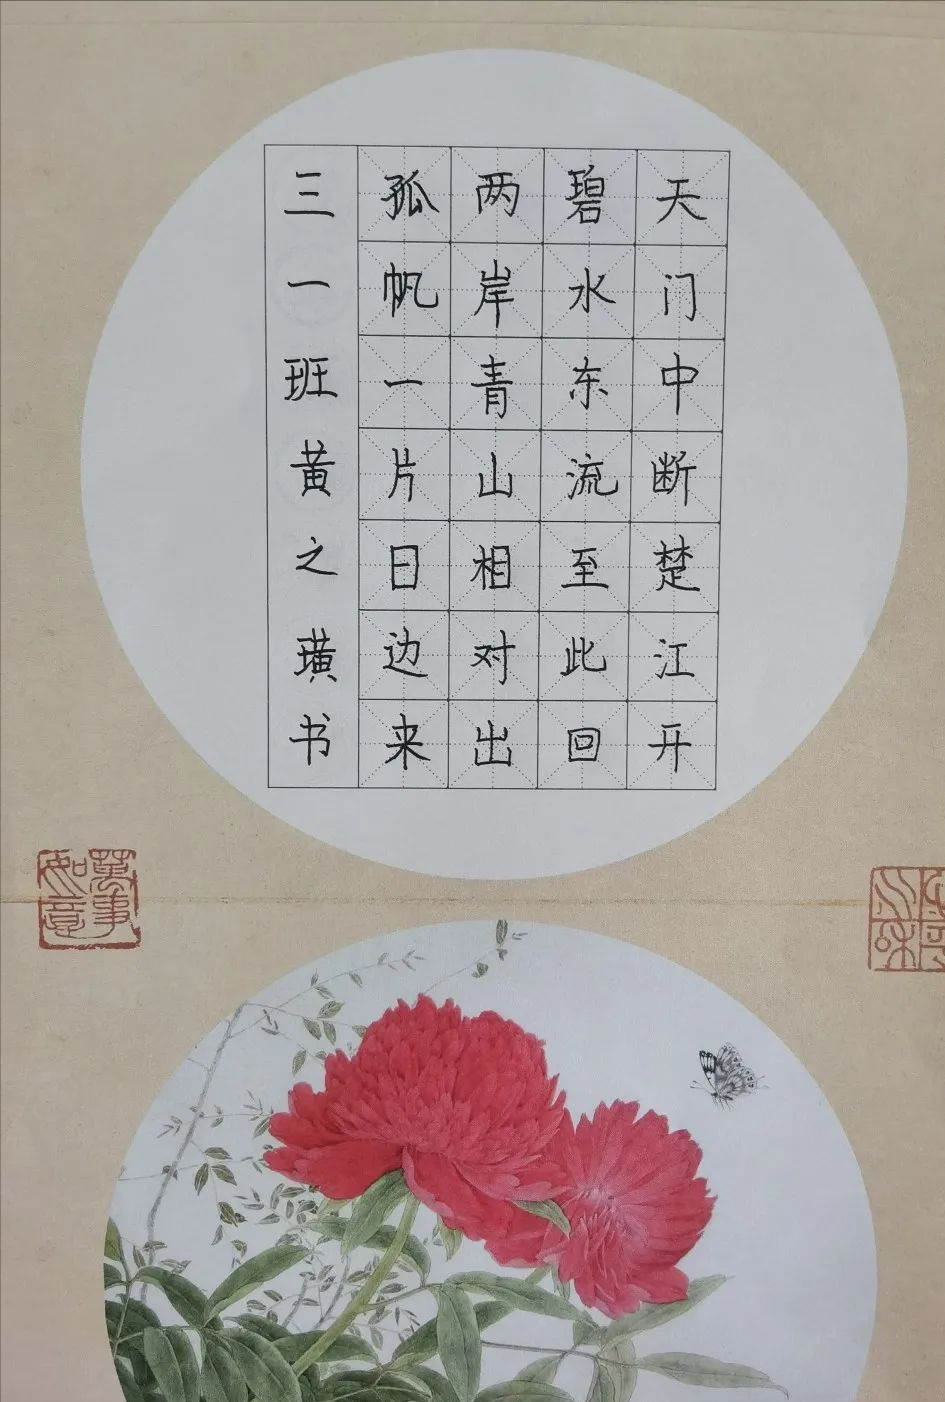 天门中断楚江开
碧水东流至此回
两岸青山相对出
孤帆一片日边来
三一班黄之璜书
萬事如意